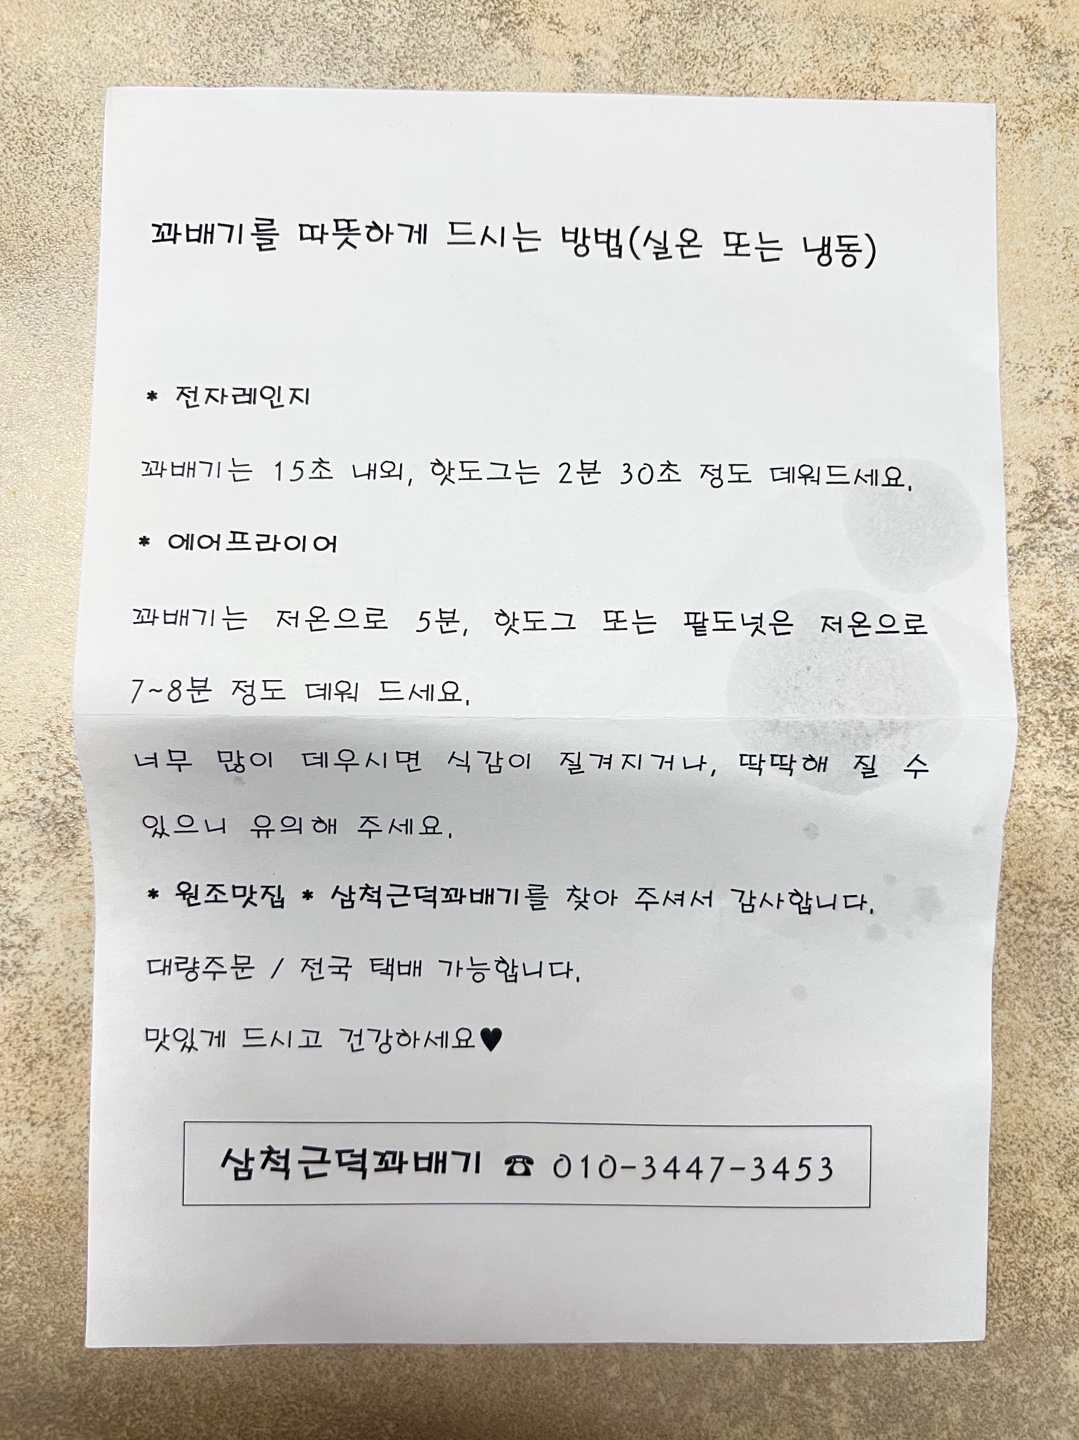 꽈배기를 따뜻하게 드시는 방법(실온 또는 냉동)
* 전자레인지
꽈배기는 15초 내외, 핫도그는 2분 30초 정도 데워드세요.
* 에어프라이어
꽈배기는 저온으로 5분, 핫도그 또는 팥도넛은 저온으로
7~8분 정도 데워 드세요.
너무 많이 데우시면 식감이 질겨지거나, 딱딱해 질 수
있으니 유의해 주세요.
* 원조맛집 * 삼척근덕꽈배기를 찾아 주셔서 감사합니다.
대량주문 / 전국 택배 가능합니다.
맛있게 드시고 건강하세요♥
삼척근덕꽈배기 ☎ 010-3447-3453